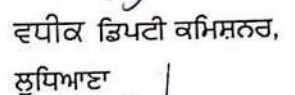 ਵਧੀਕ ਡਿਪਟੀ ਕਮਿਸ਼ਨਰ,
ਲੁਧਿਆਣਾ